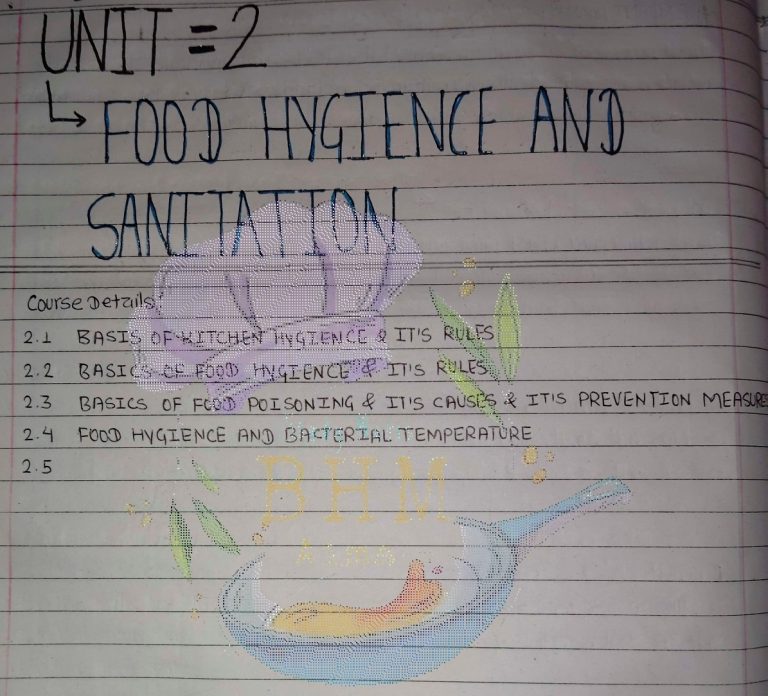 UNIT = 2
↳ FOOD HYGIENCE AND
SANITATION
Course Details:
2.1 BASIS OF KITCHEN HYGIENCE & IT'S RULES
2.2 BASICS OF FOOD HYGIENCE & IT'S RULES
2.3 BASICS OF FOOD POISONING & IT'S CAUSES & IT'S PREVENTION MEASURE
2.4 FOOD HYGIENCE AND BACTERIAL TEMPERATURE
2.5
BHM